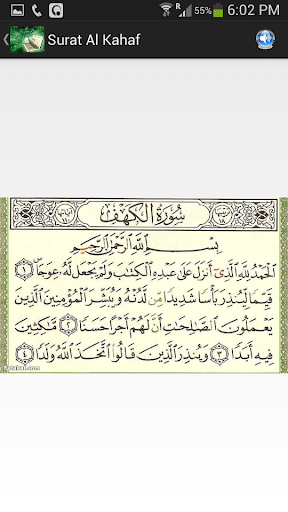 55% 6:02 PM
Surat Al Kahaf
سُورَةُ الكَهْفِ
بِسْمِ ٱللَّهِ ٱلرَّحْمَٰنِ ٱلرَّحِيمِ
ٱلْحَمْدُ لِلَّهِ ٱلَّذِىٓ أَنزَلَ عَلَىٰ عَبْدِهِ ٱلْكِتَٰبَ وَلَمْ يَجْعَل لَّهُۥ عِوَجَاۜ ١
قَيِّمًا لِّيُنذِرَ بَأْسًا شَدِيدًا مِّن لَّدُنْهُ وَيُبَشِّرَ ٱلْمُؤْمِنِينَ ٱلَّذِينَ
يَعْمَلُونَ ٱلصَّٰلِحَٰتِ أَنَّ لَهُمْ أَجْرًا حَسَنًا ٢ مَّٰكِثِينَ
فِيهِ أَبَدًا ٣ وَيُنذِرَ ٱلَّذِينَ قَالُوا۟ ٱتَّخَذَ ٱللَّهُ وَلَدًا ٤